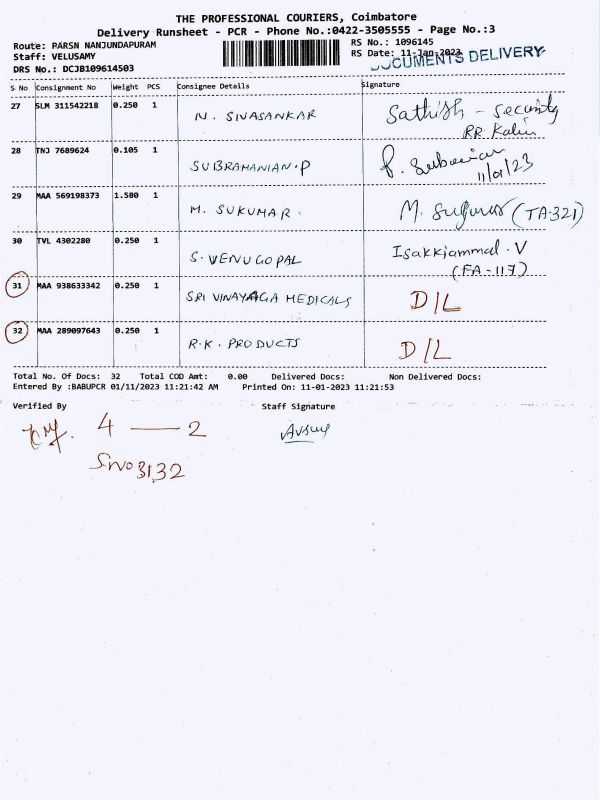 THE PROFESSIONAL COURIERS, Coimbatore
Delivery Runsheet - PCR - Phone No.:0422-3505555 - Page No.:3
Route: PARSN NANJUNDAPURAM
Staff: VELUSAMY
DRS No.: DCJB109614503
RS No.: 1096145
RS Date: 11-Jan-2023
DOCUMENTS DELIVERY
S No Consignment No Weight PCS Consignee Details Signature
27 SLM 311542218 0.250 1 N. SIVASANKAR Sathish - security
RR
28 TNJ 7689624 0.105 1 SUBRAMANIAN.P P.
11/01/23
29 MAA 569198373 1.580 1 M. SUKUMAR. M. (TA-321)
30 TVL 4302280 0.250 1 S. VENUGOPAL Isakkiammal. V
(FA-117)
31 MAA 938633342 0.250 1 SRI VINAYAGA MEDICALS D/L
32 MAA 289097643 0.250 1 R.K. PRODUCTS D/L
Total No. Of Docs: 32 Total COD Amt: 0.00 Delivered Docs: Non Delivered Docs:
Entered By :BABUPCR 01/11/2023 11:21:42 AM Printed On: 11-01-2023 11:21:53
Verified By Staff Signature
4 — 2
SNO 31,32